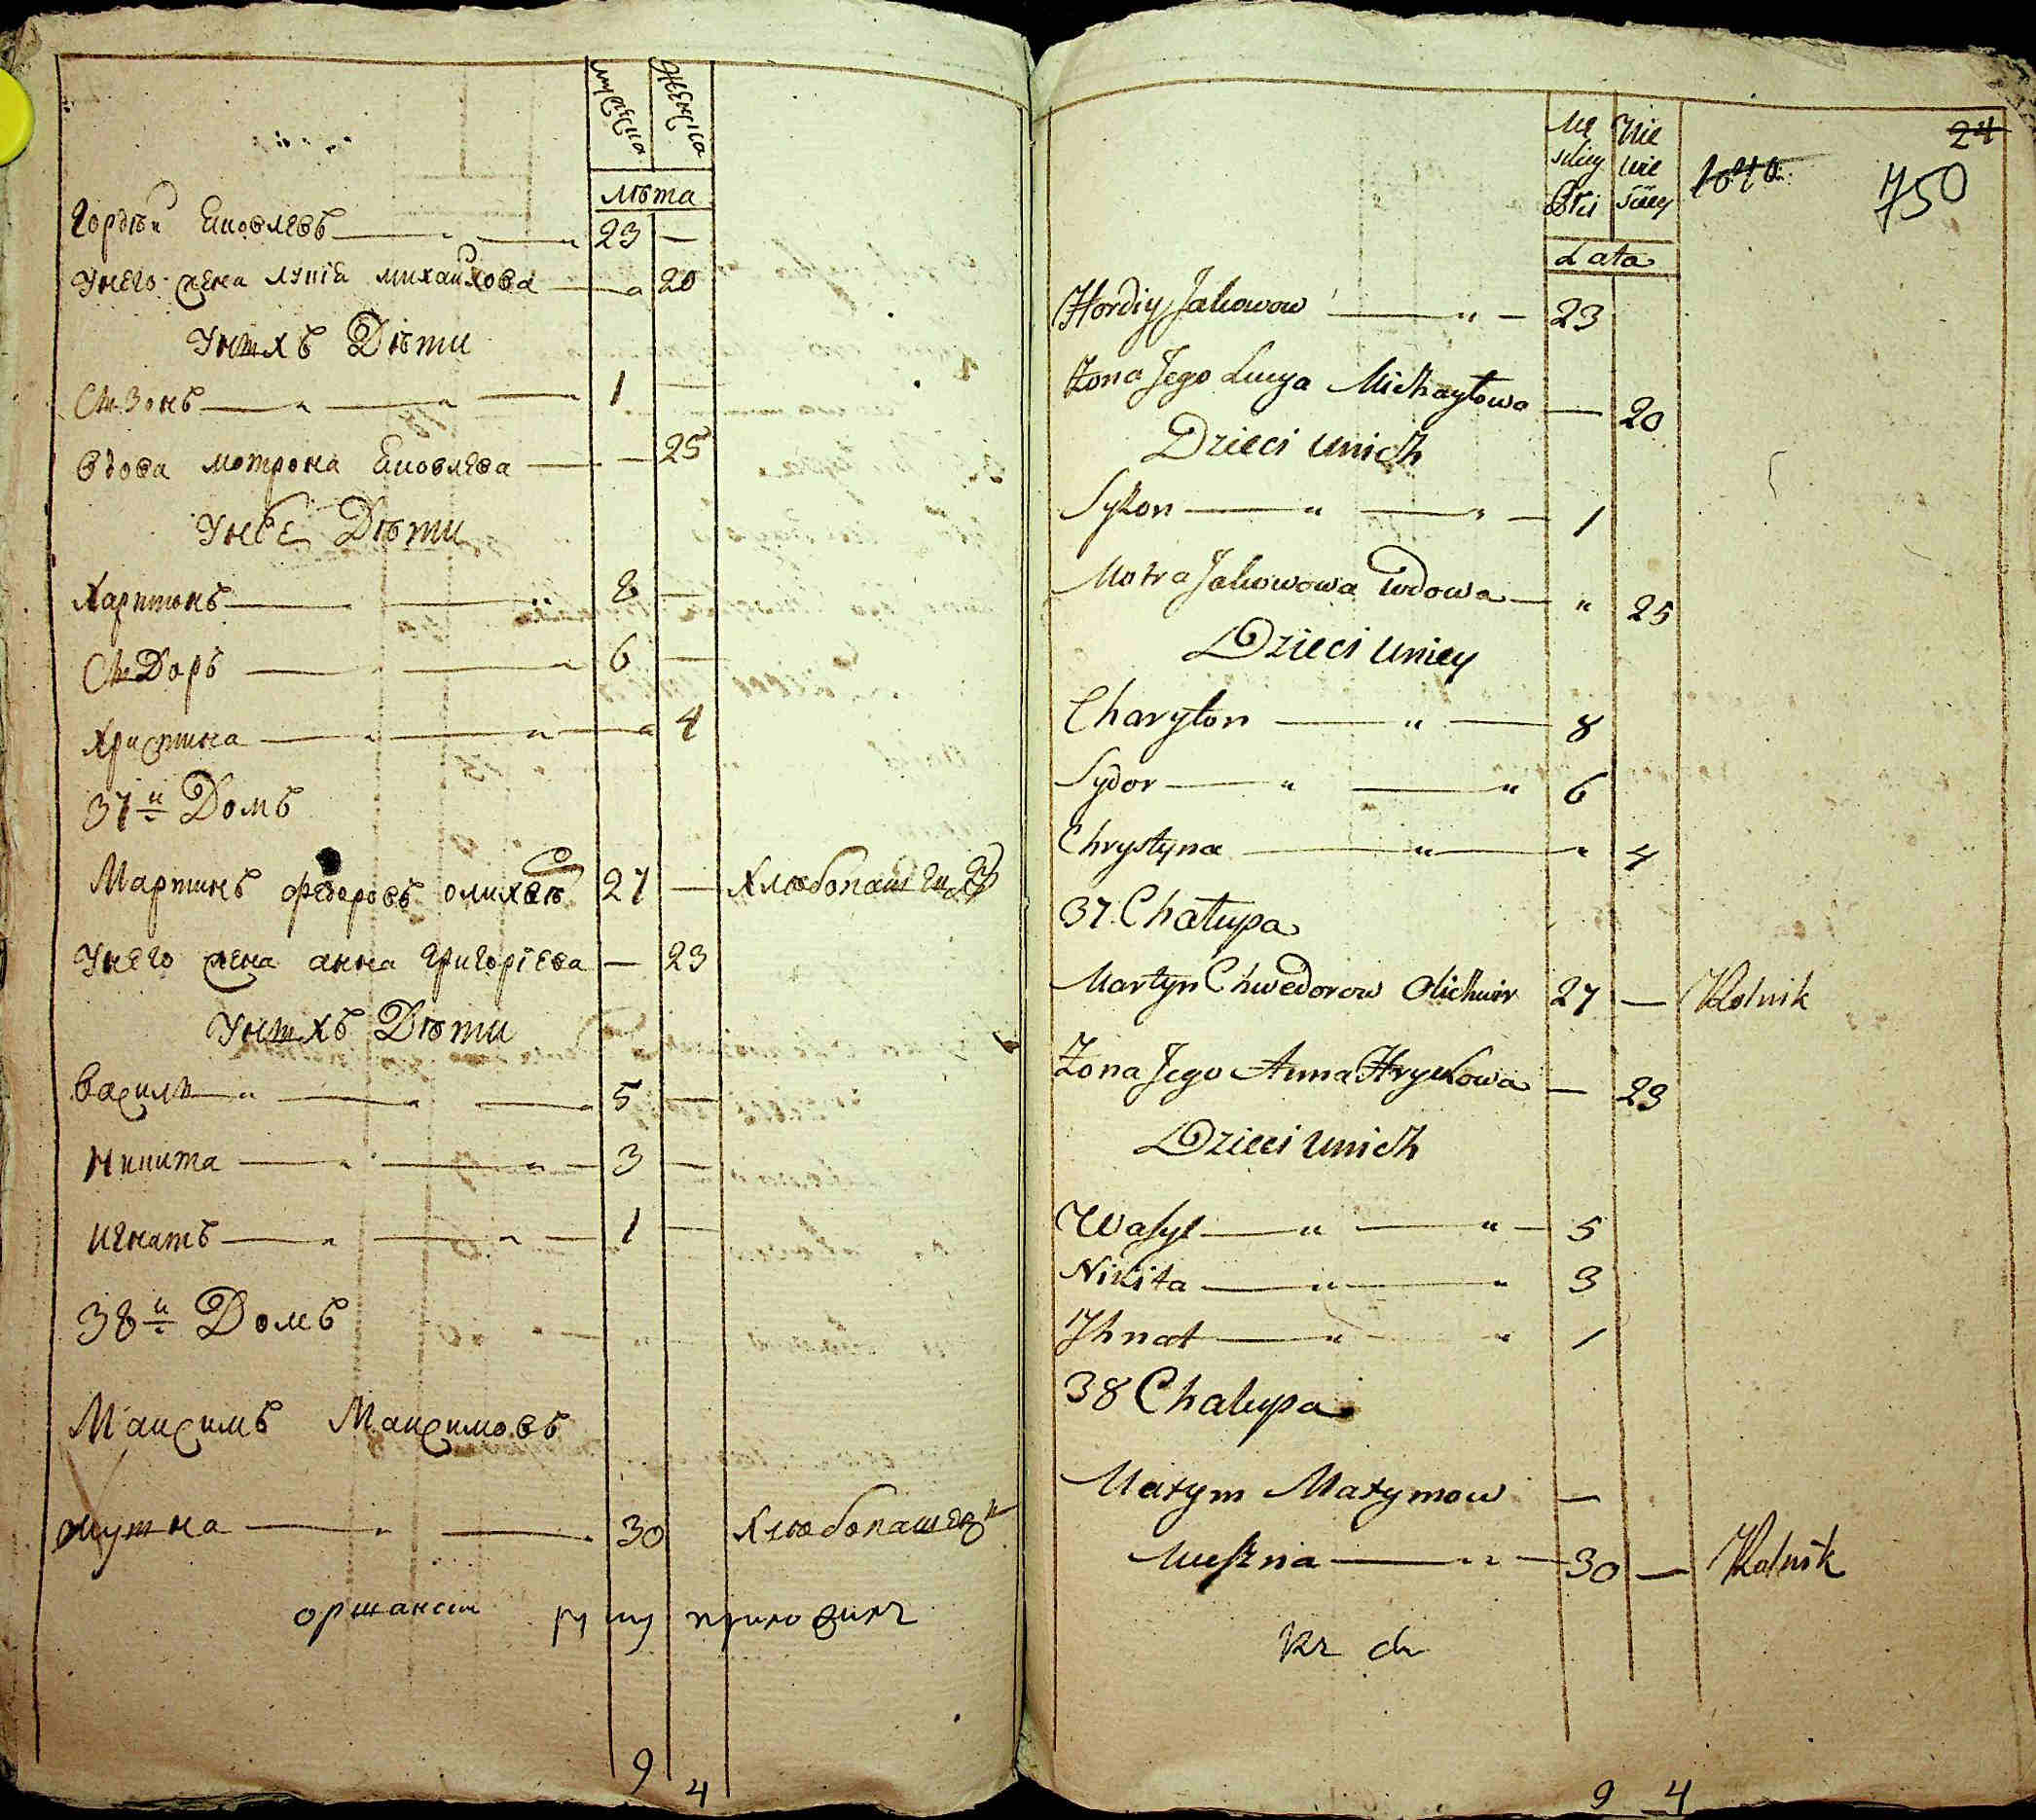 мужеска
женска
лѣта
Гордѣй Яковлевъ 23 —
Унего жена Луція михайлова — 20
Унихъ Дѣти
Сизонъ 1 —
Вдова мотрона Яковлева — 25
Унее Дѣти
Харитонъ 8 —
Сидоръ 6 —
Христина 4
37й Домъ
Мартинъ Федоровъ олихвѣ 27 — Хлѣбопашецъ
Унего жена анна Григорієва — 23
Унихъ Дѣти
Василь 5 —
Никита 3 —
Игнатъ 1 —
38й Домъ
Максимъ Максимовъ
30 Хлѣбопашец
9 4
24
750
Lata
Hordiy Jakowow — " — 23
Żona Jego Łucya Michayłowa — 20
Dzieci unich
Syzon — " — " — 1
Motra Jakowowa Wdowa — " 25
Dzieci uniey
Charyton — " — 8
Sydor — " — " 6
Chrystyna — " — " 4
37. Chałupa
Martyn Chwedorow Olichwir 27 — Rolnik
Żona Jego Anna Hryckowa — 23
Dzieci unich
Wasyl — " — " — 5
Nikita — " — " 3
Ihnat — " — " 1
38 Chałupa
Maxym Maxymow —
— " — 30 — Rolnik
9 4